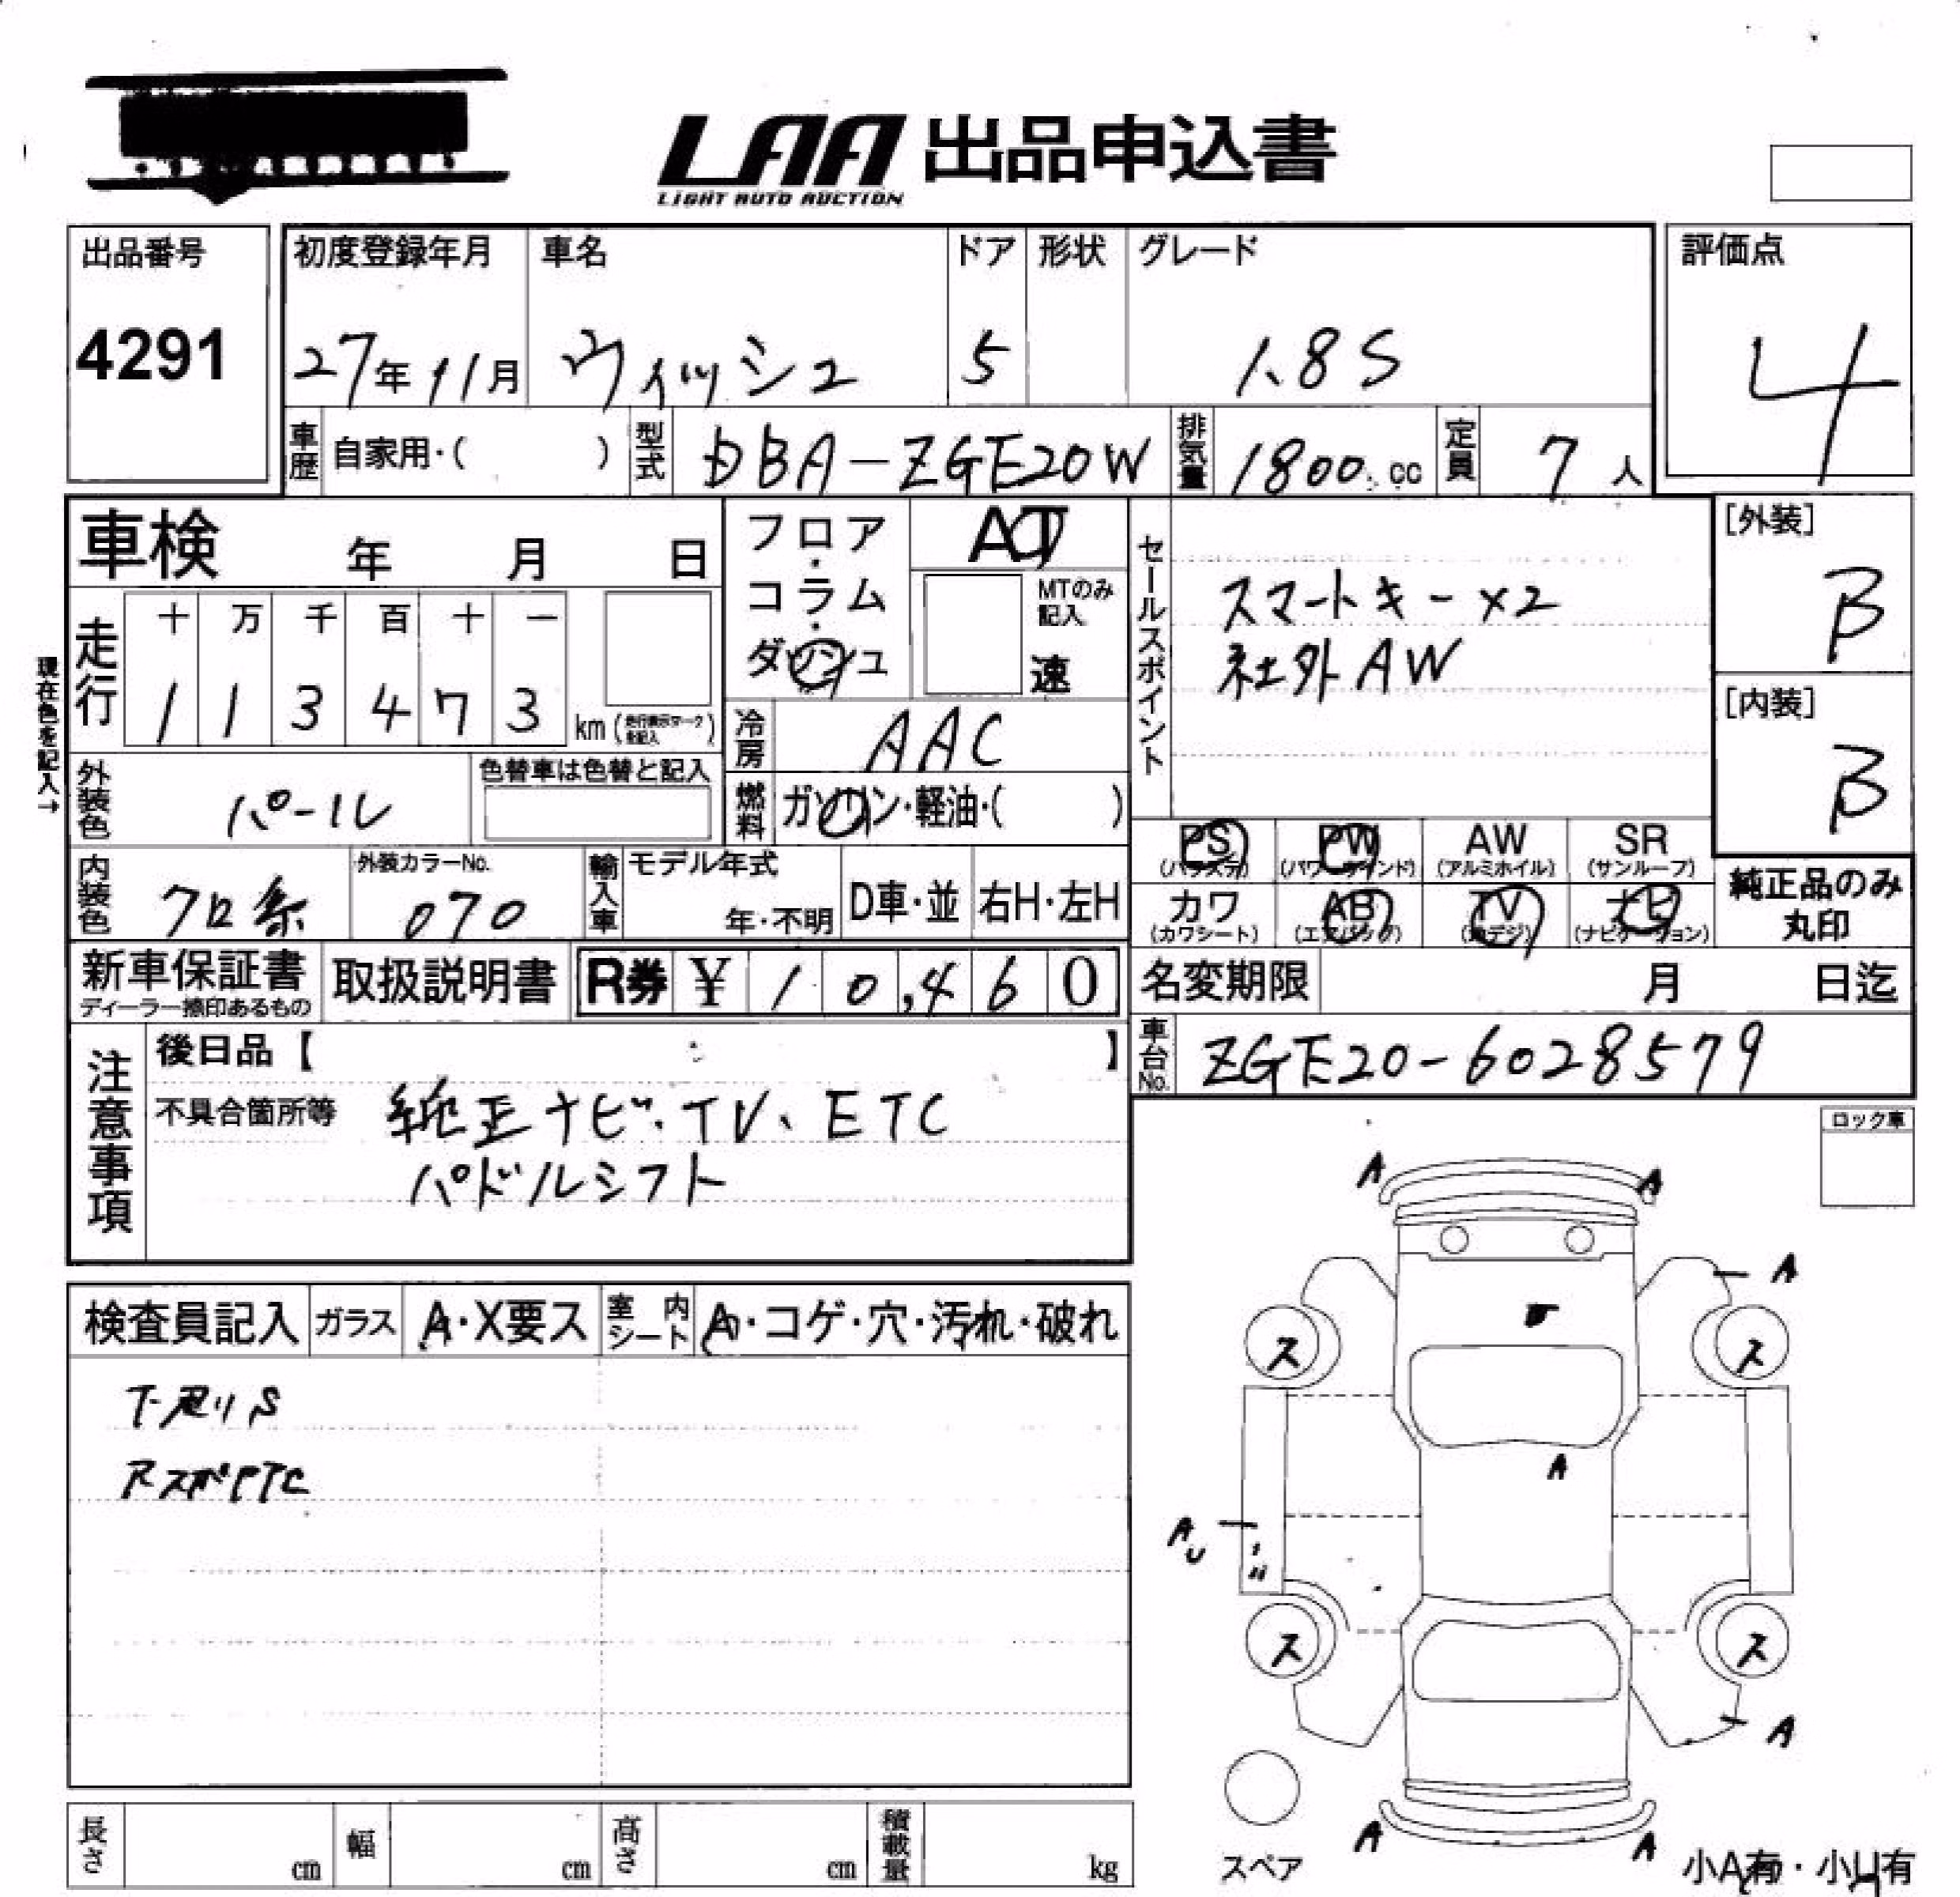 LAA 出品申込書
LIGHT AUTO AUCTION
出品番号
4291
初度登録年月
27年11月
車名
ウィッシュ
ドア
5
形状
グレード
1.8S
評価点
4
車歴
自家用・( )
型式
DBA-ZGE20W
排気量
1800 cc
定員
7人
車検 年 月 日
フロア・コラム・ダッシュ
AT
MTのみ記入
速
セールスポイント
スマートキー×2
社外AW
[外装]
B
[内装]
B
現在色を記入→
走行
十 万 千 百 十 一
1 1 3 4 7 3
km (走行表示マークを記入)
冷房
AAC
外装色
パール
色替車は色替と記入
燃料
ガソリン・軽油・( )
PS PW AW SR
(パワステ) (パワーウィンド) (アルミホイル) (サンルーフ)
カワ AB TV ナビ
(カワシート) (エアバッグ) (地デジ) (ナビゲーション)
純正品のみ
丸印
内装色
クロ系
外装カラーNo.
070
輸入車
モデル年式
年・不明
D車・並
右H・左H
新車保証書
ディーラー捺印あるもの
取扱説明書
R券 ¥ 10,460
名変期限 月 日迄
車台No.
ZGE20-6028579
注意事項
後日品【 】
不具合箇所等
純正ナビ.TV、ETC
パドルシフト
ロック車
検査員記入
ガラス
A・X要ス
室内シート
A・コゲ・穴・汚れ・破れ
A A
A
ス ス
A
A
U
ス ス
A
A A
スペア
小A有・小U有
長さ cm
幅 cm
高さ cm
積載量 kg